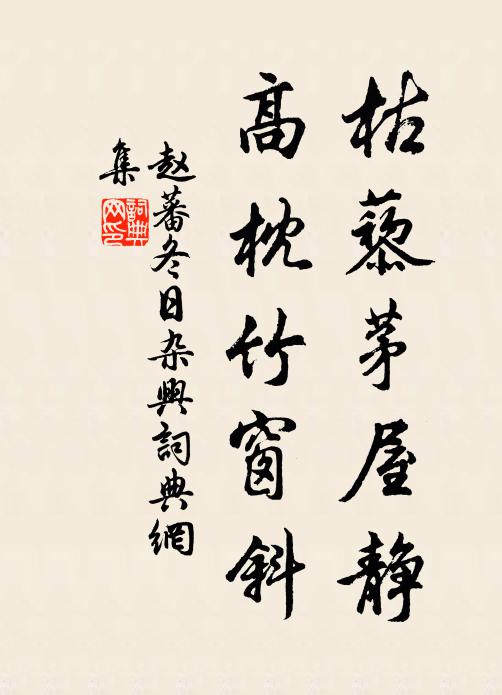 枯藜茅屋静
高枕竹窗斜
赵蕃冬日杂興詞典網
集
詞典
网印